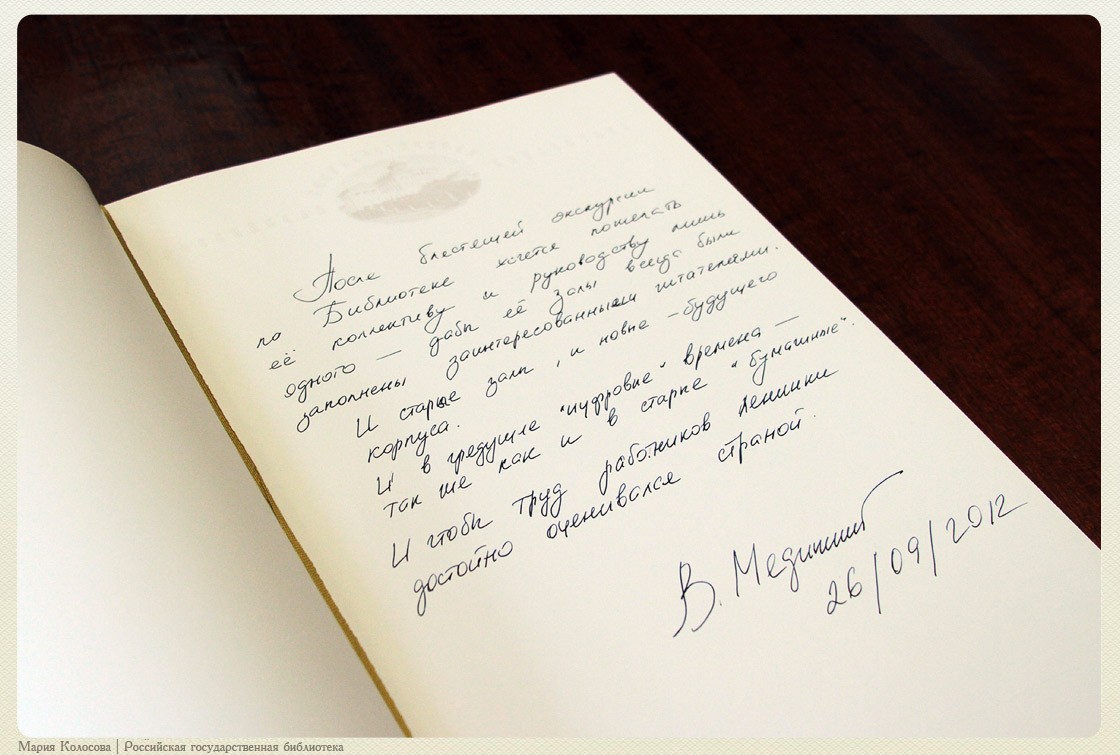 После блестящей экскурсии
по Библиотеке хочется пожелать
её коллективу и руководству лишь
одного — дабы её залы всегда были
заполнены заинтересованными читателями.
И старые залы, и новые – будущего
корпуса.
И в грядущие "цифровые" времена —
так же как и в старые "бумажные".
И чтобы труд работников Ленинки
достойно оценивался страной.
В. Мединский
26/09/2012
Мария Колосова | Российская государственная библиотека